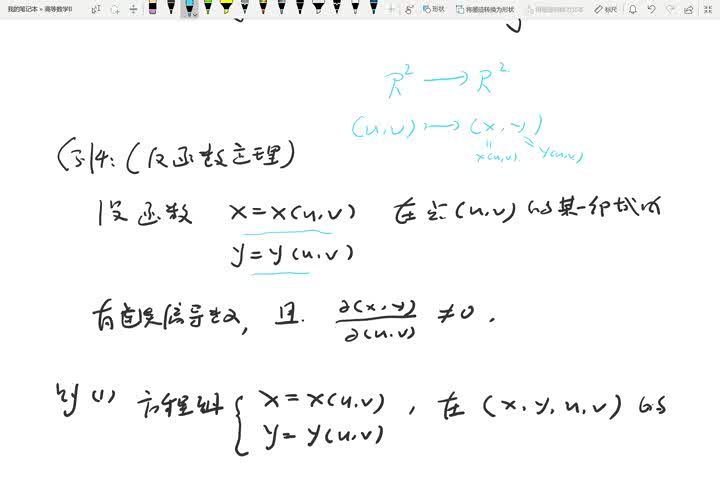 我的笔记本 » 高等数学II
形状 将墨迹转换为形状 将墨迹转换为文本 标尺
R² ⟶ R²
(u,v) ↦ (x, y)
x(u,v) y(u,v)
例4: (反函数定理)
设函数 x=x(u,v) 在点(u,v)的某一邻域内
y=y(u,v)
有连续偏导数, 且 ∂(x,y)/∂(u,v) ≠0,
则 (1) 方程组 { x=x(u,v) , 在 (x,y,u,v) 的
y=y(u,v)